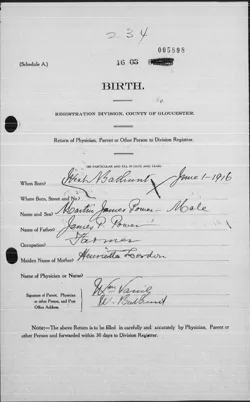 234
005898
(Schedule A.)
16 05
BIRTH.
REGISTRATION DIVISION, COUNTY OF GLOUCESTER.
Return of Physician, Parent or Other Person to Division Registrar.
(BE PARTICULAR AND FILL IN DATE AND YEAR)
When Born, West Bathurst June 1-1916
When Born, Street and No.
Name and Sex, Martin James Power - Male
Name of Father, James P. Power
Occupation, Farmer
Maiden Name of Mother, Henrietta
Name of Physician or Nurse,
Signature of Parent, Physician
or other Person, and Post
Office Address.
Wm
W. Bathurst
NOTE:—The above Return is to be filled in carefully and accurately by Physician, Parent or
other Person and forwarded within 30 days to Division Registrar.